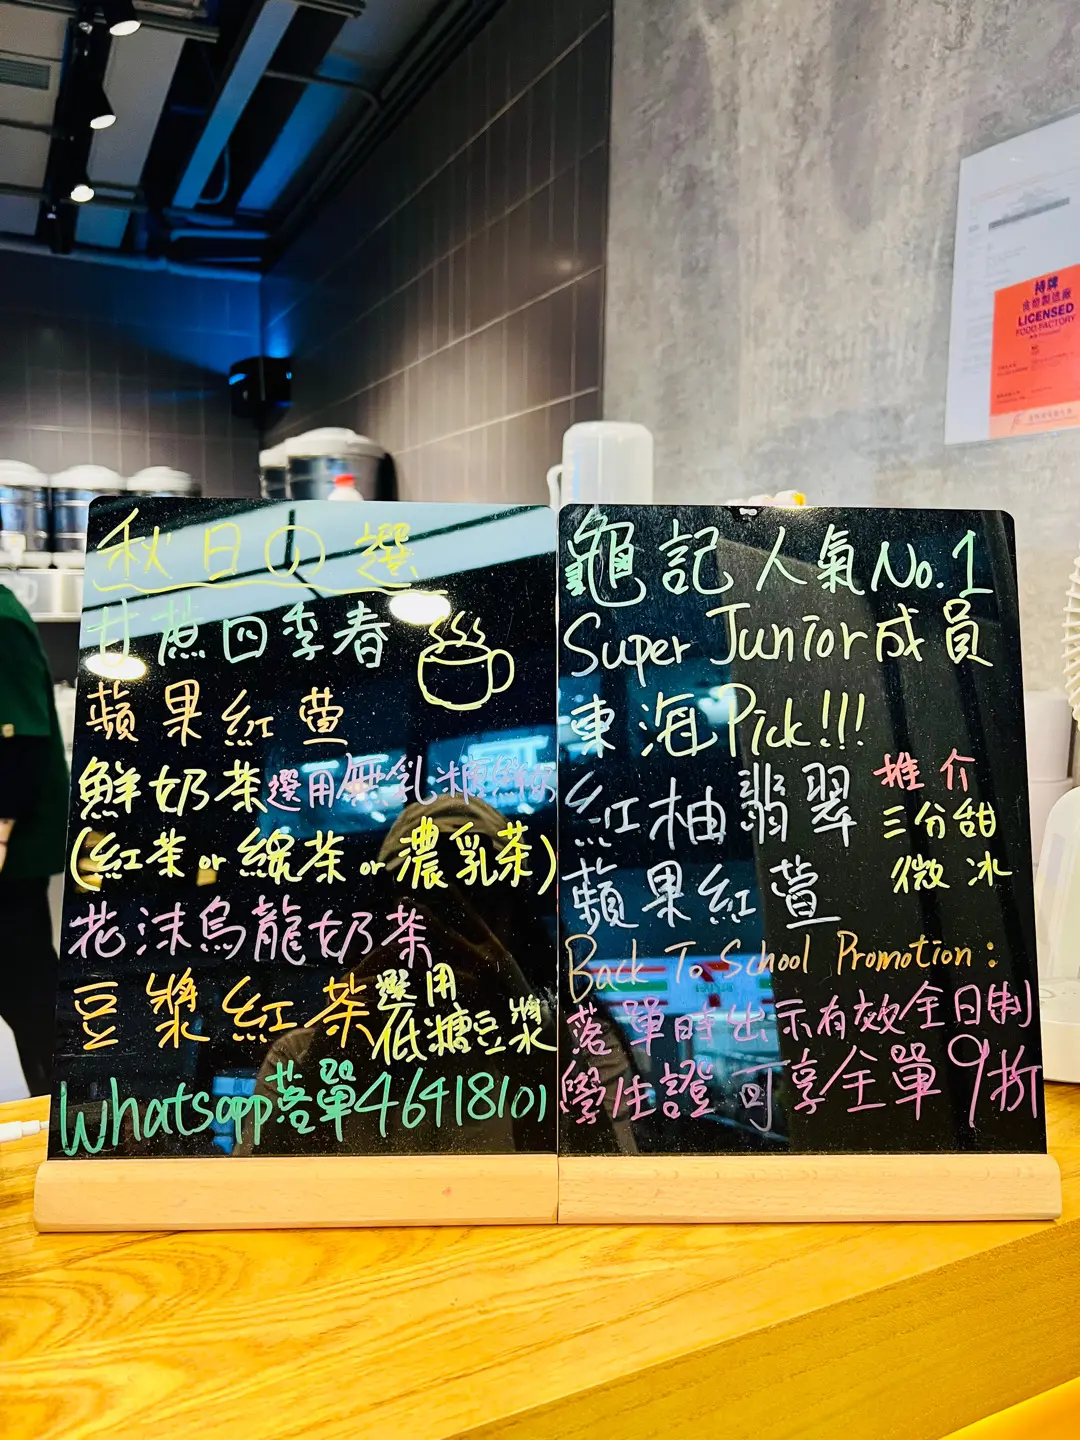 秋日の選
甘蔗四季春
蘋果紅萱
鮮奶茶選用無乳糖鮮奶
(紅茶or綠茶or濃乳茶)
花沫烏龍奶茶
豆漿紅茶選用
低糖豆漿
Whatsapp落單46418101
龜記人氣No.1
Super Junior成員
東海Pick!!!
紅柚翡翠
推介
三分甜
微冰
蘋果紅萱
Back To School Promotion:
落單時出示有效全日制
學生證可享全單9折
持牌
食物製造廠
LICENSED
FOOD FACTORY